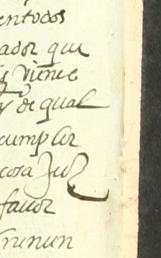 entodos
ador que
is viene
y de qual
cumplir
cosa Juz
fauor
renun